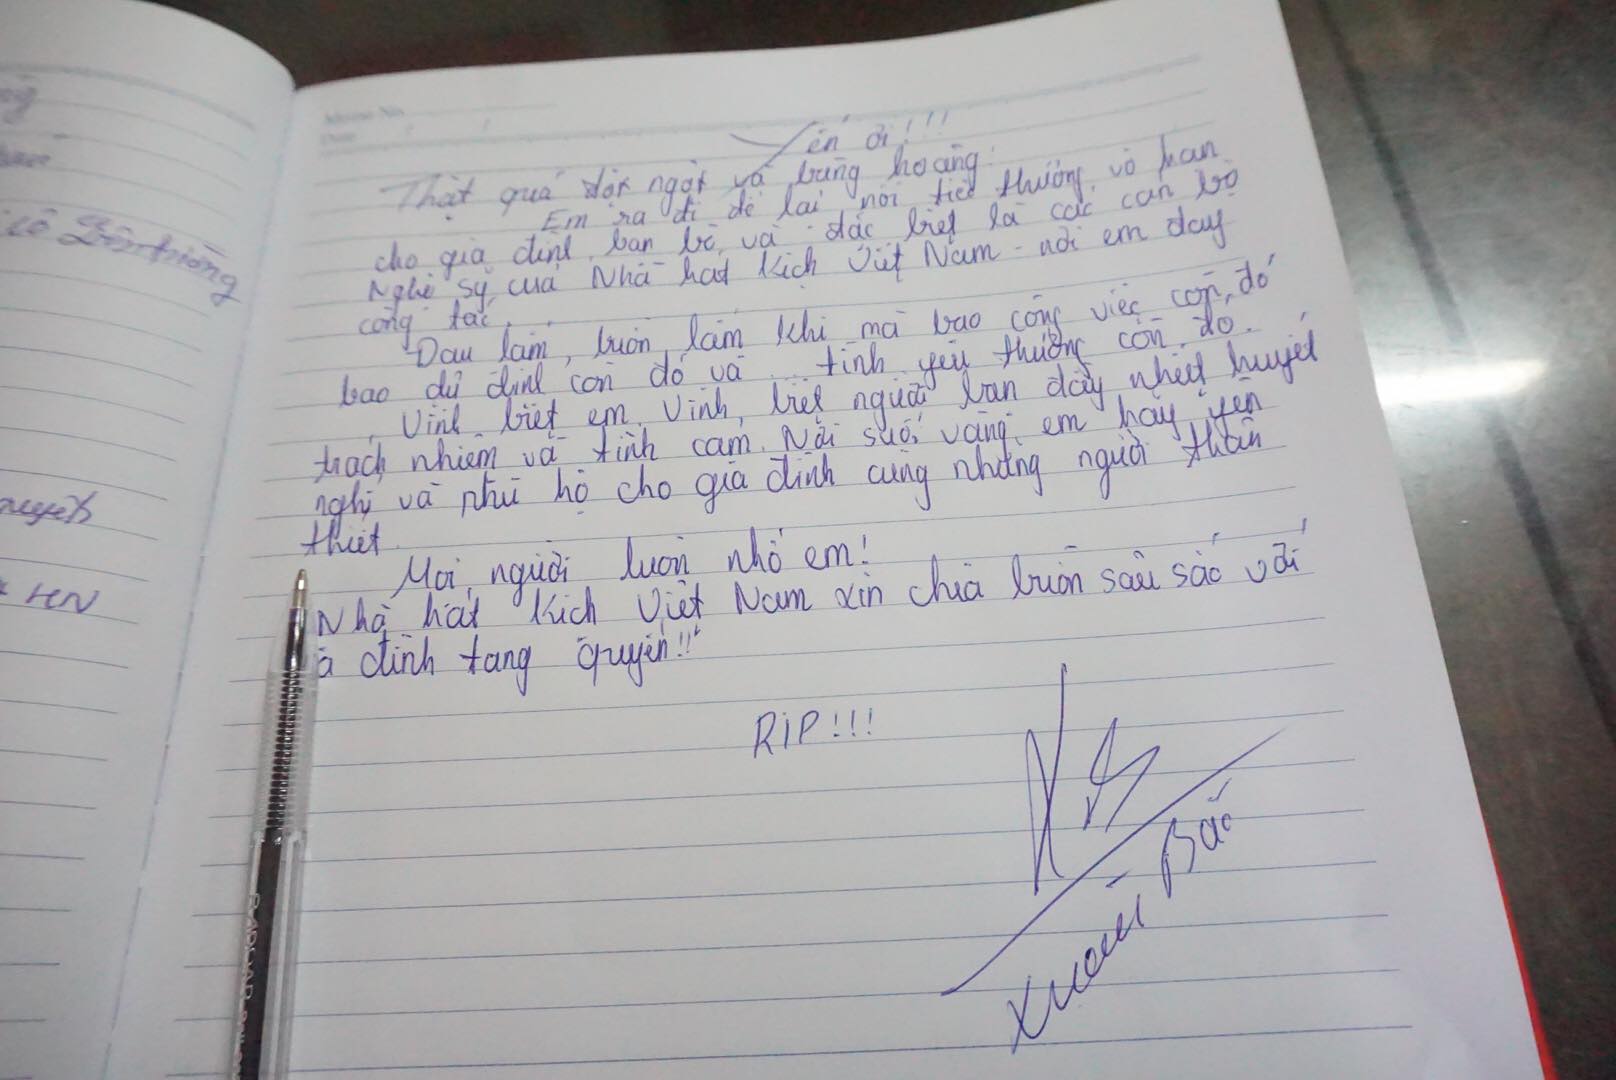 Yến ơi!!!
Thật quá đột ngột và bàng hoàng.
Em ra đi để lại nỗi tiếc thương vô hạn
cho gia đình, bạn bè, và đặc biệt là các cán bộ
Nghệ sỹ của Nhà hát Kịch Việt Nam - nơi em đang
công tác.
Đau lắm, buồn lắm khi mà bao công việc còn đó
bao dự định còn đó và ... tình yêu thương còn đó.
Vĩnh biệt em, Vĩnh biệt người bạn đầy nhiệt huyết
trách nhiệm và tình cảm. Nơi suối vàng em hãy yên
nghỉ và phù hộ cho gia đình cùng những người thân
thiết.
Mọi người luôn nhớ em!
Nhà hát Kịch Việt Nam xin chia buồn sâu sắc với
a đình tang quyến!!!
RIP!!!
Xuân Bắc
HN